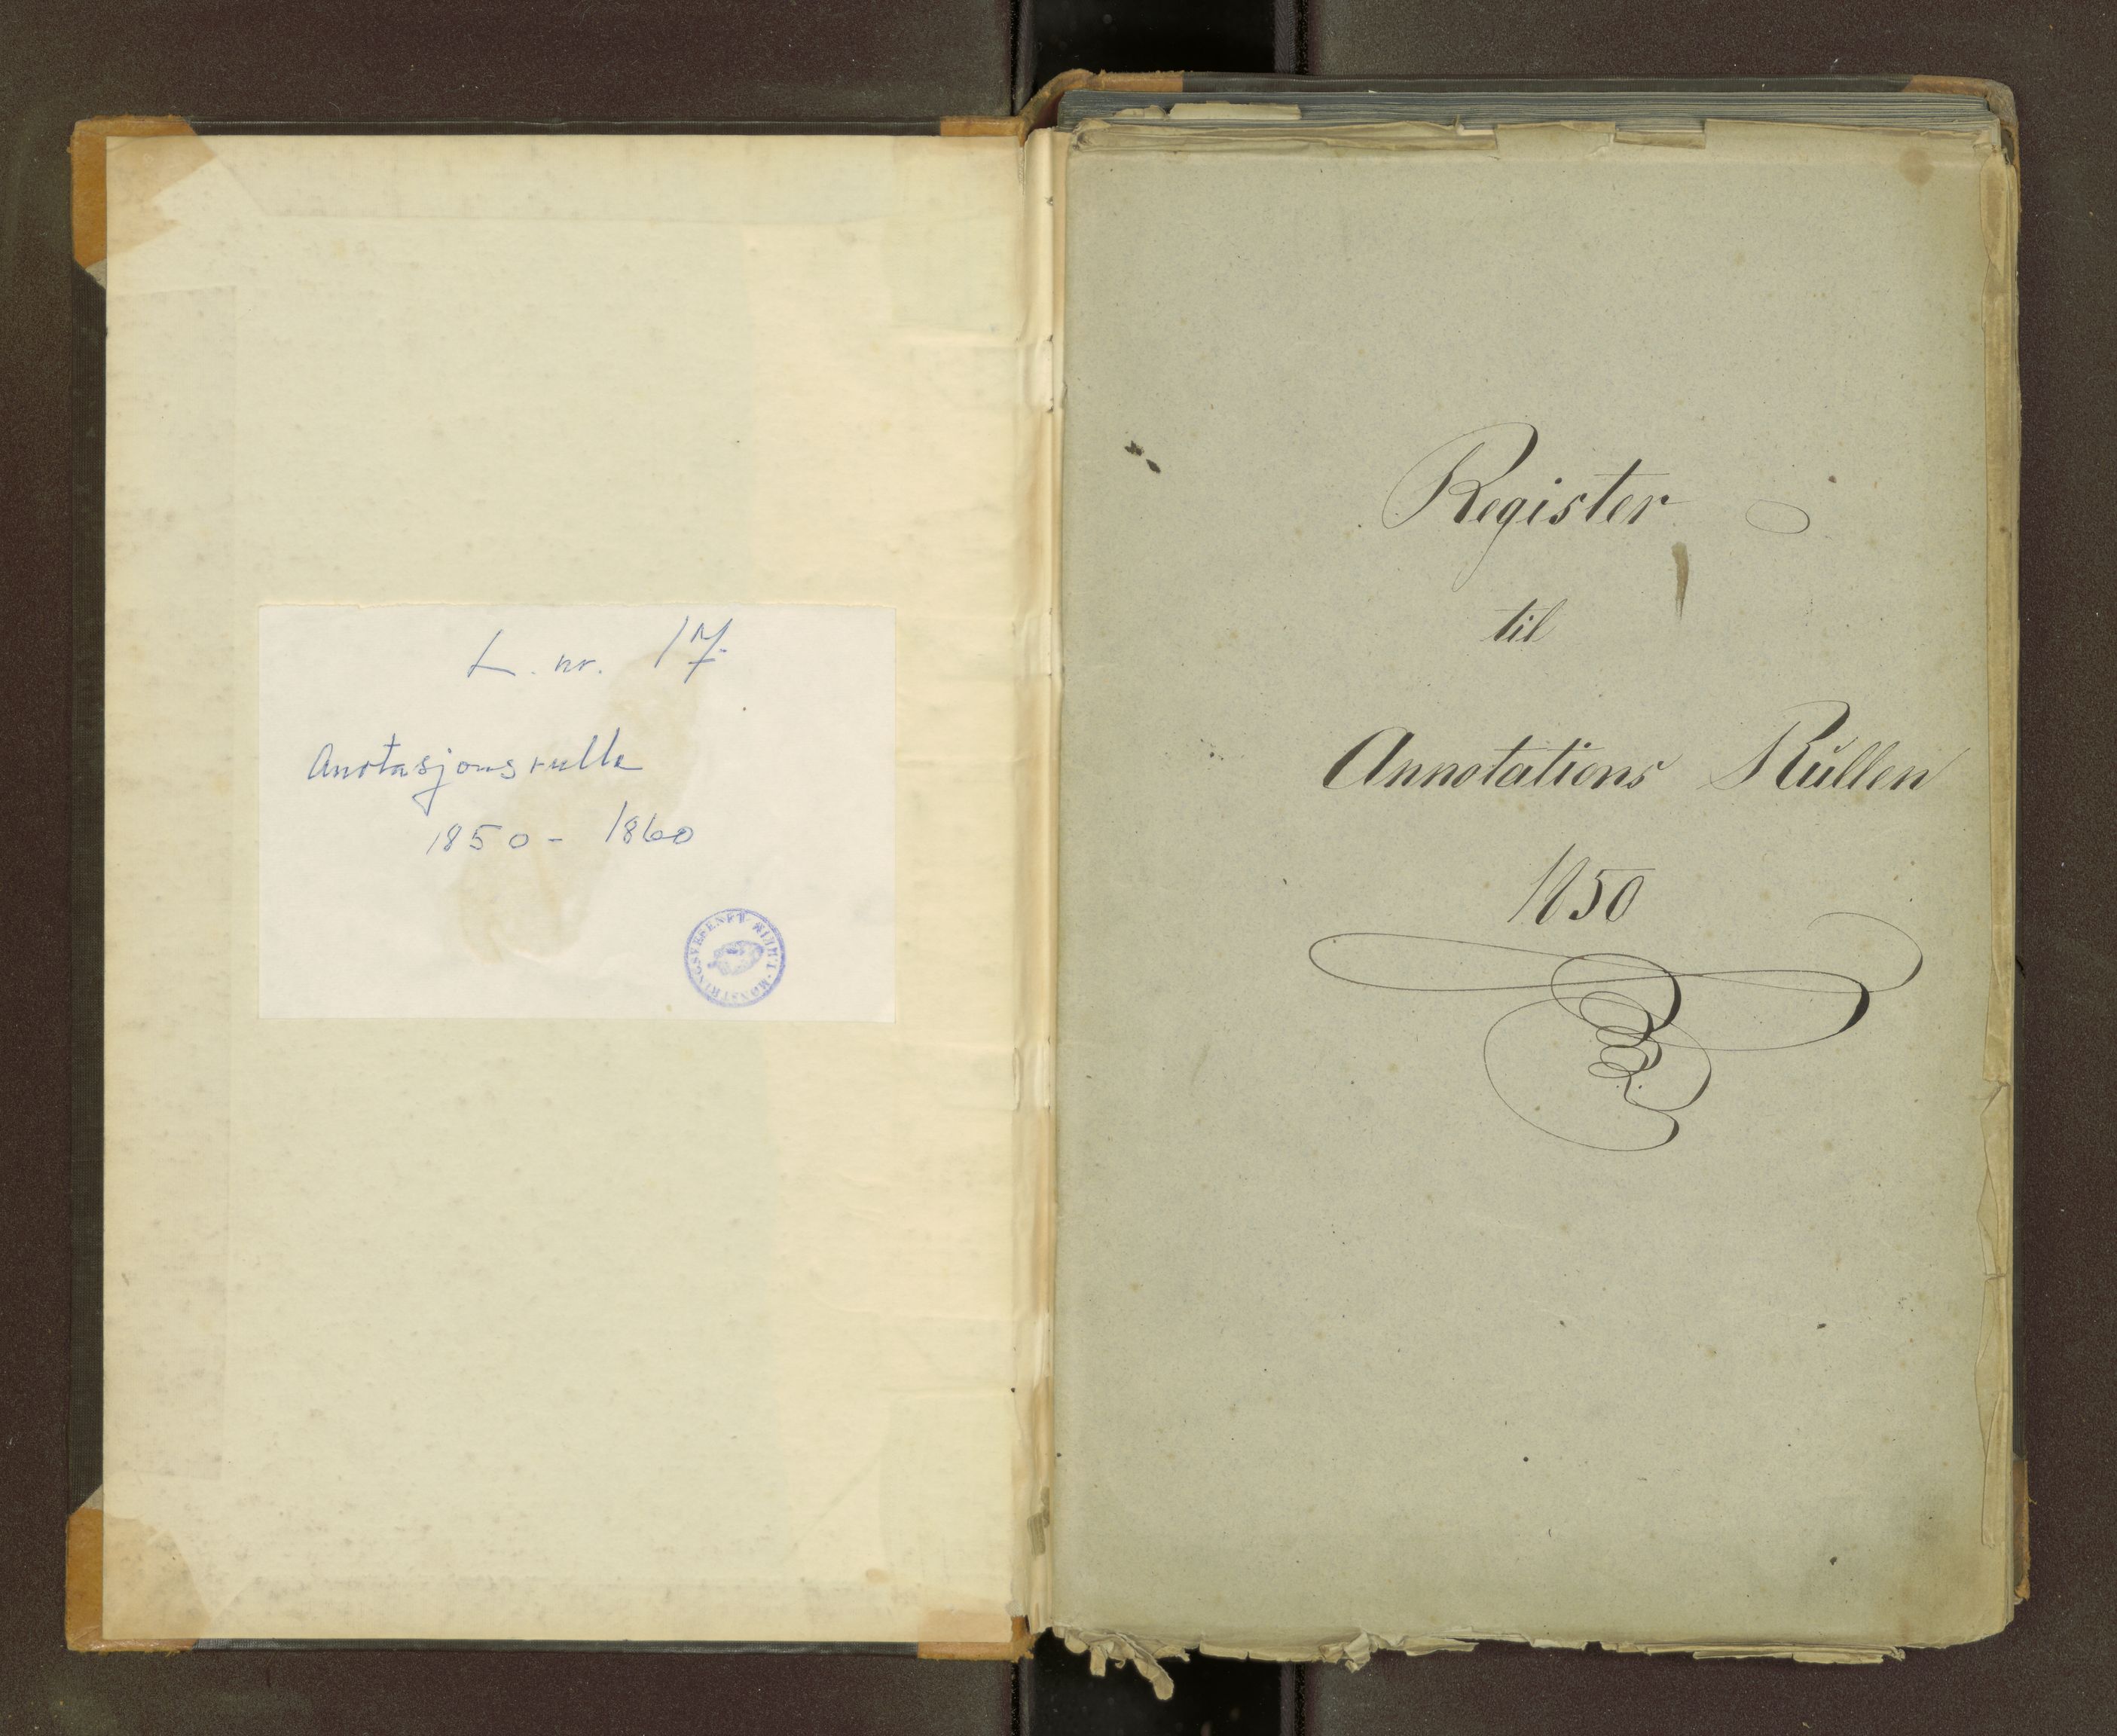 L. nr. 17.
Anotasjonsrulle
1850 - 1860
MØNSTRINGSVESENET
Register
til
Annotations Rúllen
1850